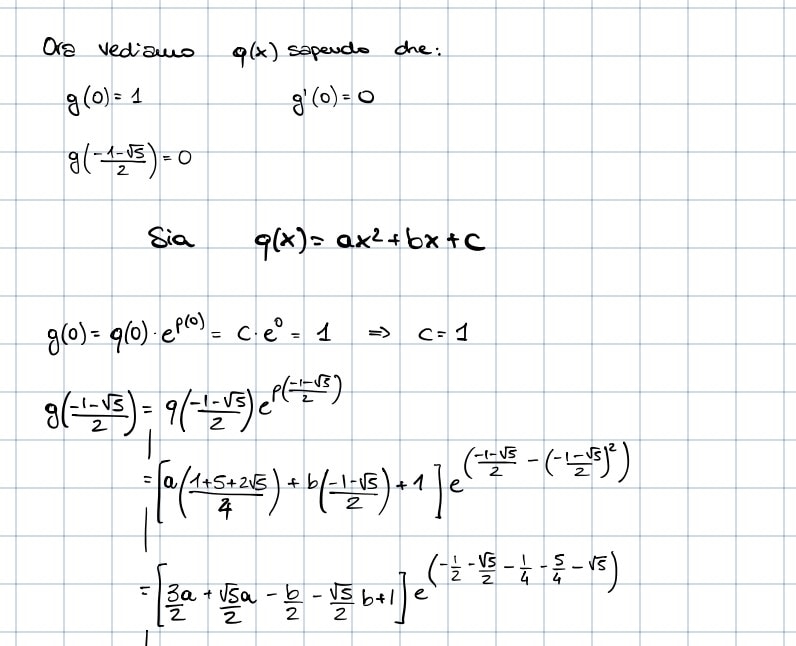 Ora vediamo q(x) sapendo che:
g(0) = 1 g'(0) = 0
g((-1-√5)/2) = 0
Sia q(x) = ax² + bx + c
g(0) = q(0) · e^(p(0)) = c · e⁰ = 1 ⇒ c = 1
g((-1-√5)/2) = q((-1-√5)/2) e^(p((-1-√5)/2))
= [a((1+5+2√5)/4) + b((-1-√5)/2) + 1] e^((-1-√5)/2 - ((-1-√5)/2)²)
= [3a/2 + √5a/2 - b/2 - √5/2 b + 1] e^(-1/2 - √5/2 - 1/4 - 5/4 - √5)